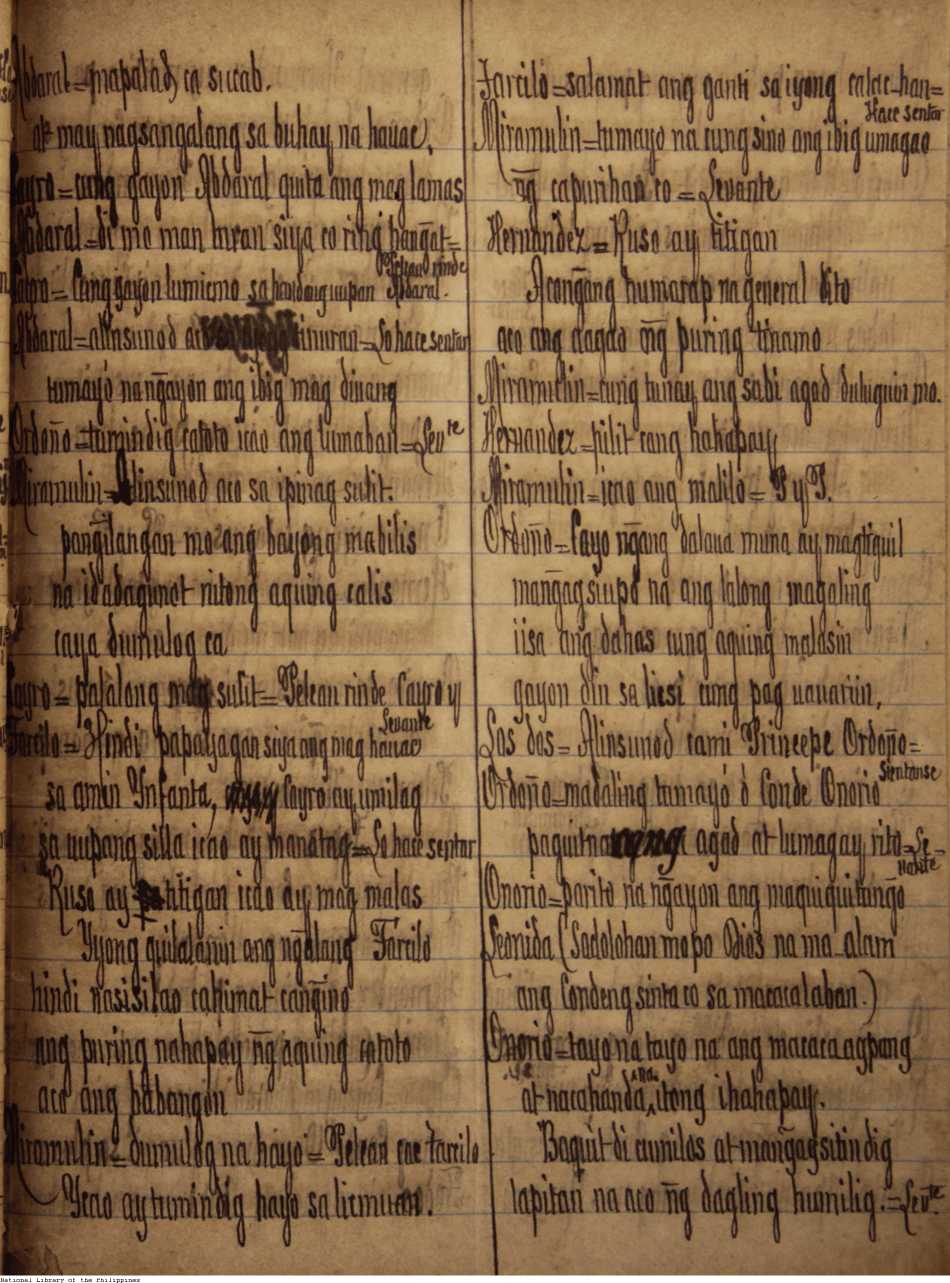 Abdaral=mapalad, ca sucab.
at may nagsangalang sa buhay na hauac,
Cayro=cung gayon Abdaral quita ang mag lamas
Abdaral=di mo man turan siya co ring hangat=
Cayro=Cung gayon lumicmo sa Abdaral. Pelean rinde
Abdaral=alinsunod aco tinuran=Lo hace sentar
tumayo nangayon ang ibig mag diuang
Ordoño=tumindig catoto icao ang lumaban=Levte
Miramulin=Alinsunod aco sa ipinag sulit.
pangilangan mo ang bayong mabilis
na idadagunot nitong aquing calis
caya dumulog ca
Cayro=patalang sulit=Pelean rinde Cayro y
Levante
Tarcilo=Hindi papayagan siya ang mag hauac
sa amin Ynfanta, Cayro ay umilag
sa uupang silla icao ay manatag=Lo hace sentar
Ruso ay titigan icao ay mag malas
Yyong quilalanin ang ngalang Tarcilo
hindi nasisilao cahimat canino
ang puring nahapay ng aquing catoto
aco ang babangon
Miramulin=dumulog na hayo=Pelean cae tarcilo
Ycao ay tumindig hayo sa licmuan.
Tarcilo=salamat ang ganti sa iyong calac-han=
Hace sentar
Miramulin=tumayo na cung sino ang ibig umagao
ng capurihan co=Levante
Hernandez=Ruso ay titigan
Acongang humarap na general dito
aco ang aagao ng puring tinamo
Miramulin=cung tunay ang sabi agad duluguin mo.
Hernandez=pilit cang hahapay
Miramulin=icao ang malilo=P y P.
Ordoño=Cayo ngang dalaua muna ay magtiguil
mangagsiupo na ang lalong magaling
iisa ang dahas cung aquing malasin
gayon din sa liesi cung pag uauariin,
Los dos=Alinsunod cami Principe Ordoño=
Sientanse
Ordoño=madaling tumayo o Conde Onorio
paguitna agad at lumagay rito=Le-
vante
Onorio=parito na ngayon ang maquiquitungo
Leonida (Sadolohan mo po Dios na ma-alam
ang Condeng sinta co sa macacalaban.)
Onorio=tayo na tayo na ang macacaagpang
at nacahanda na itong ihahapay.
Baquit di cumilos at mangagsitindig
lapitan na aco ng dagling humilig.=Levte.
National Library of the Philippines